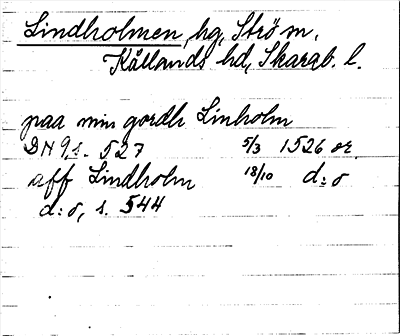 Lindholmen, hg, Strö sn,
Kållands hd, Skarab. l.
paa min gordh Linholm
DN 9, s. 527 5/3 1526 or.
aff Lindholm 18/10 d:o
d:o, s. 544